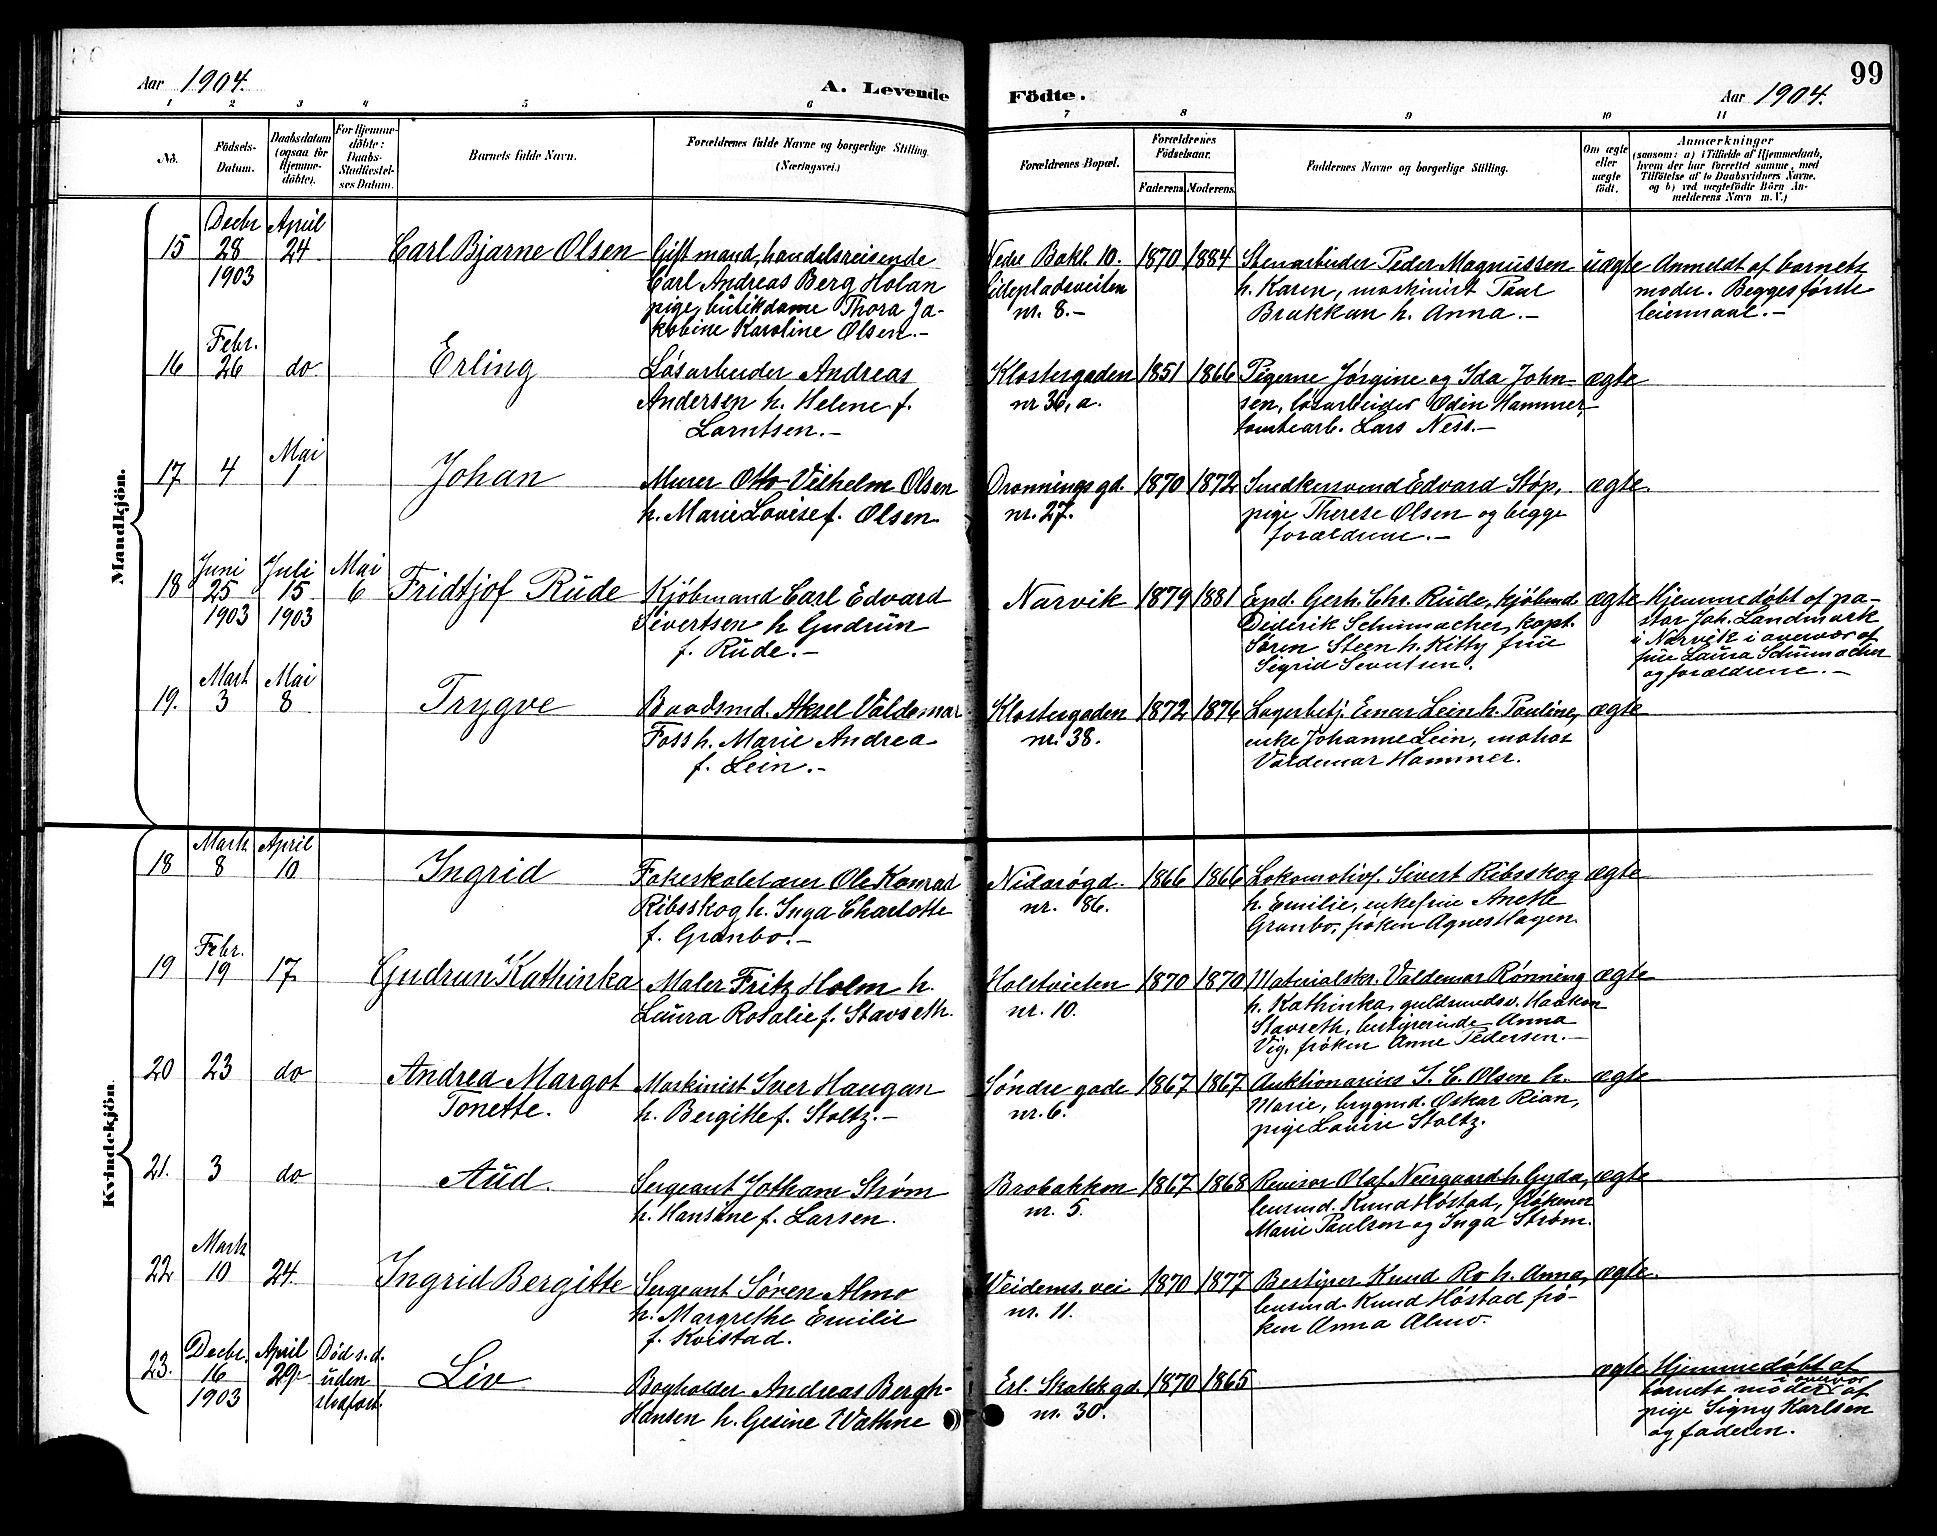 99
Aar 1904.
A. Levende Födte.
Aar 1904.
1 2 3 4 5 6 7 8 9 10 11
No.
Födsels-
Datum.
Daabsdatum
(ogsaa for
Hjemme-
döbte).
For Hjemme-
döbte:
Daabs-
Stadfæstel-
ses Datum.
Barnets fulde Navn.
Forældrenes fulde Navne og borgerlige Stilling.
(Næringsvei.)
Forældrenes Bopæl.
Forældrenes
Födselsaar.
Faderens. Moderens.
Faddernes Navne og borgerlige Stilling.
Om ægte
eller
uægte
födt.
Anmerkninger
(saasom: a) i Tilfælde af Hjemmedaab,
hvem der har forrettet samme, med
Tilföielse af to Daabsvidners Navne,
og b) ved uægtefödte Börn An-
melderens Navn m. V.)
Mandkjön.
15
Decbr
28
1903
April
24
Carl Bjarne Olsen
Gift mand, handelsreisende
Carl Andreas Berg Holan
pige, butikdame Thora Ja-
kobine Karoline Olsen.-
Nedre Bakl. 10.
Lillepladsveiten
nr. 8.-
1870
1884
Stenarbeider Peder Magnussen
h. Karen, maskinist Paul
Brakkan h. Anna.-
uægte
Anmeldt af barnets
moder. Begges første
leiermaal.-
16
Febr.
26
do
Erling
Løsarbeider Andreas
Andersen h. Helene f.
Larntsen.-
Klostergaden
nr 36, a.
1851
1866
Pigerne Jørgine og Ida John-
sen, løsarbeider Odin Hammer,
tomtearb. Lars Ness.-
ægte
17
4
Mai
1
Johan
Murer Otto Vilhelm Olsen
h. Marie Lovise f. Olsen
Dronningsgd.
nr. 27.
1870
1872
Snedkersvend Edvard Støp,
pige Therese Olsen og begge
forældrene.-
ægte.
18
Juni
25
1903
Juli
15
1903
Mai
6
Fridtjof Rude
Kjøbmand Carl Edvard
Sivertsen h Gudrun
f. Rude.-
Narvik
1879
1881
Exp. Gerh. Chr. Rude, kjøbmd.
Diderik Schumacher, kapt.
Søren Steen h. Kitty frue
Sigrid Sivertsen.
ægte
Hjemmedøbt af pa-
stor Joh. Landmark
i Narvik i overvær af
frue Laura Schumacher
og forældrene.-
19.
Mart
3
Mai
8
Trygve
Baadsmd. Aksel Valdemar
Foss h. Marie Andrea
f. Lein.-
Klostergaden
nr. 38.
1872
1876
Lagerbetj. Einar Lein h. Pauline,
enke Johanne Lein, matros
Valdemar Hammer.
ægte
Kvindekjön.
18
Marts
8
April
10
Ingrid
Folkeskolelærer Ole Konrad
Ribsskog h. Inga Charlotte
f. Granbo.-
Nidarøgd.
nr. 86.
1866
1866
Lokomotivf. Sivert Ribsskog
h. Emilie, enkefrue Anette
Granbo, frøken Agnes Hagen.
ægte
19
Febr.
19
17
Gudrun Kathinka
Maler Fritz Holm h.
Laura Rosalie f. Stavseth.
Holstveiten
nr. 10.
1870
1870
Materialskr. Valdemar Rønning
h. Kathinka, guldsmedsv. Haakon
Stavseth, bestyrerinde Anna
Vig, frøken Anne Pedersen.-
ægte
20
23
do
Andrea Margot
Tonette.
Maskinist Iver Haugan
h. Bergitte f. Stoltz.-
Søndre gade
nr. 6.
1867
1867
Auktionarius I. C. Olsen h.
Marie, brygmd. Oskar Rian,
pige Lovise Stoltz.
ægte
21.
3
do
Aud.
Sergeant Jotham Strøm
h. Hansine f. Larsen.
Brobakken
nr. 5
1867
1868
Revisor Olaf Neergaard h. Gyda,
lensmd. Knud Høstad, frøkener
Marie Paulsen og Inga Strøm.
ægte
22
Marts
10
24.
Ingrid Bergitte
Sergeant Søren Almo
h. Margrethe Emilie
f. Kvistad.
Weidems. vei
nr. 11.
1870
1877
Bestyrer Knud Ro h. Anna,
lensmd. Knud Høstad frø-
ken Anna Almo.
ægte.
23.
Decbr.
16
1903
April
29.
Død s.d.
uden
stadfæst.
Liv
Bogholder Andreas Bergh-
Hansen h. Gesine Wathne
Erl. Skakkgd
nr. 30.
1870
1865
ægte
Hjemmedøbt af
barnets moder i overvær af
pige Signy Karlsen
og faderen.